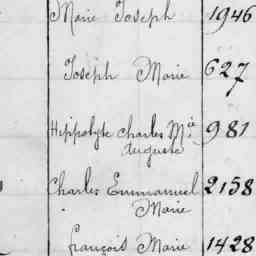 Marie Joseph 1946
Joseph Marie 627
Hippolyte Charles Mie 981
Auguste
Charles Emmanuel 2158
Marie
françois Marie 1428